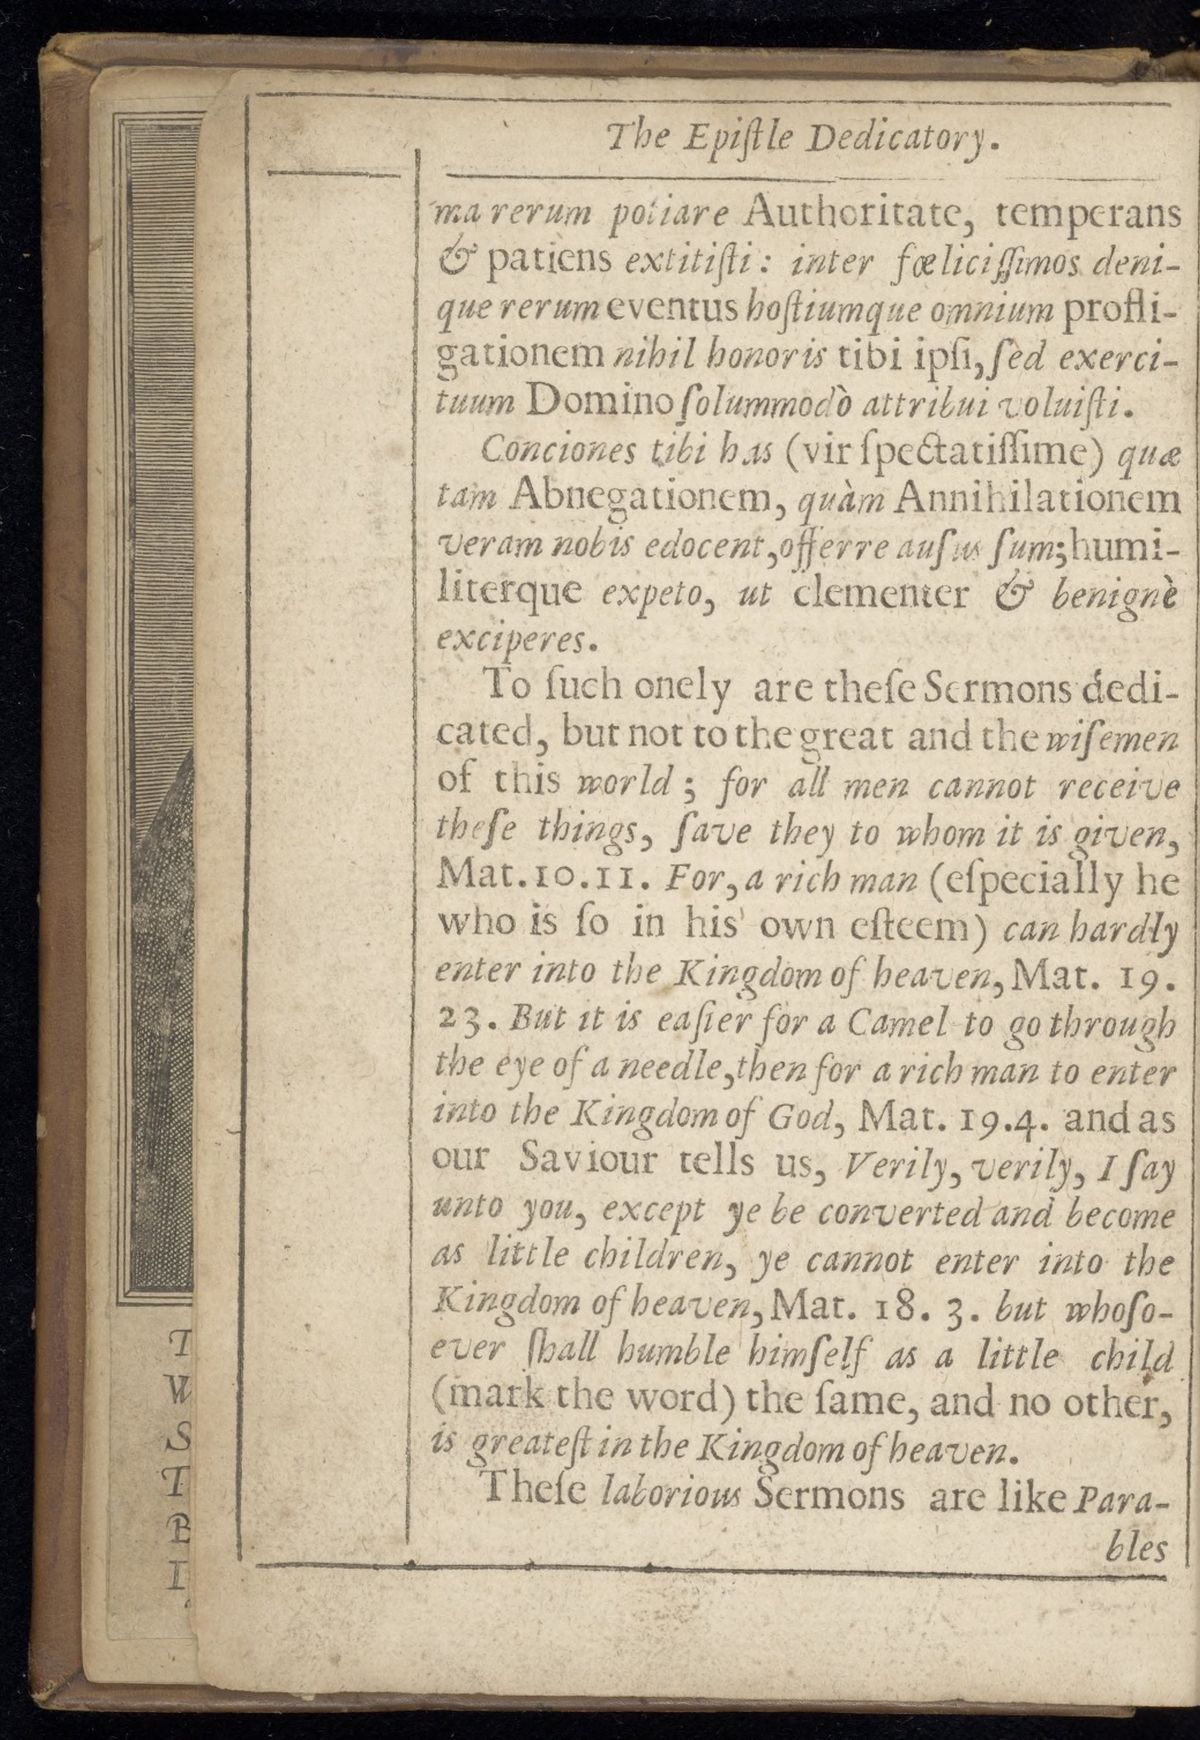 The Epiſtle Dedicatory.
ma rerum potiare Authoritate, temperans
& patiens extitiſti: inter fœliciſſimos deni-
que rerum eventus hoſtiumque omnium profli-
gationem nihil honoris tibi ipſi, ſed exerci-
tuum Domino ſolummodò attribui voluiſti.
Conciones tibi has (vir ſpectatiſſime) quæ
tam Abnegationem, quàm Annihilationem
veram nobis edocent, offerre auſus ſum; humi-
literque expeto, ut clementer & benignè
exciperes.
To ſuch onely are theſe Sermons dedi-
cated, but not to the great and the wiſemen
of this world; for all men cannot receive
theſe things, ſave they to whom it is given,
Mat. 10. 11. For, a rich man (eſpecially he
who is ſo in his own eſteem) can hardly
enter into the Kingdom of heaven, Mat. 19.
23. But it is eaſier for a Camel to go through
the eye of a needle, then for a rich man to enter
into the Kingdom of God, Mat. 19.4. and as
our Saviour tells us, Verily, verily, I ſay
unto you, except ye be converted and become
as little children, ye cannot enter into the
Kingdom of heaven, Mat. 18. 3. but whoſo-
ever ſhall humble himſelf as a little child
(mark the word) the ſame, and no other,
is greateſt in the Kingdom of heaven.
Theſe laborious Sermons are like Para-
bles
T
W
S
T
B
I